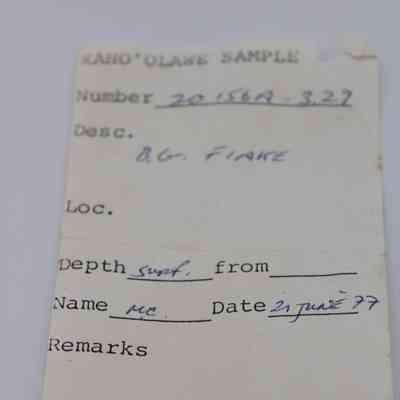 KAHO'OLAWE SAMPLE
Number 20 156A - 3.27
Desc.
B.G. FLAKE
Loc.
Depth surf. from
Name MC. Date 21 JUNE 77
Remarks